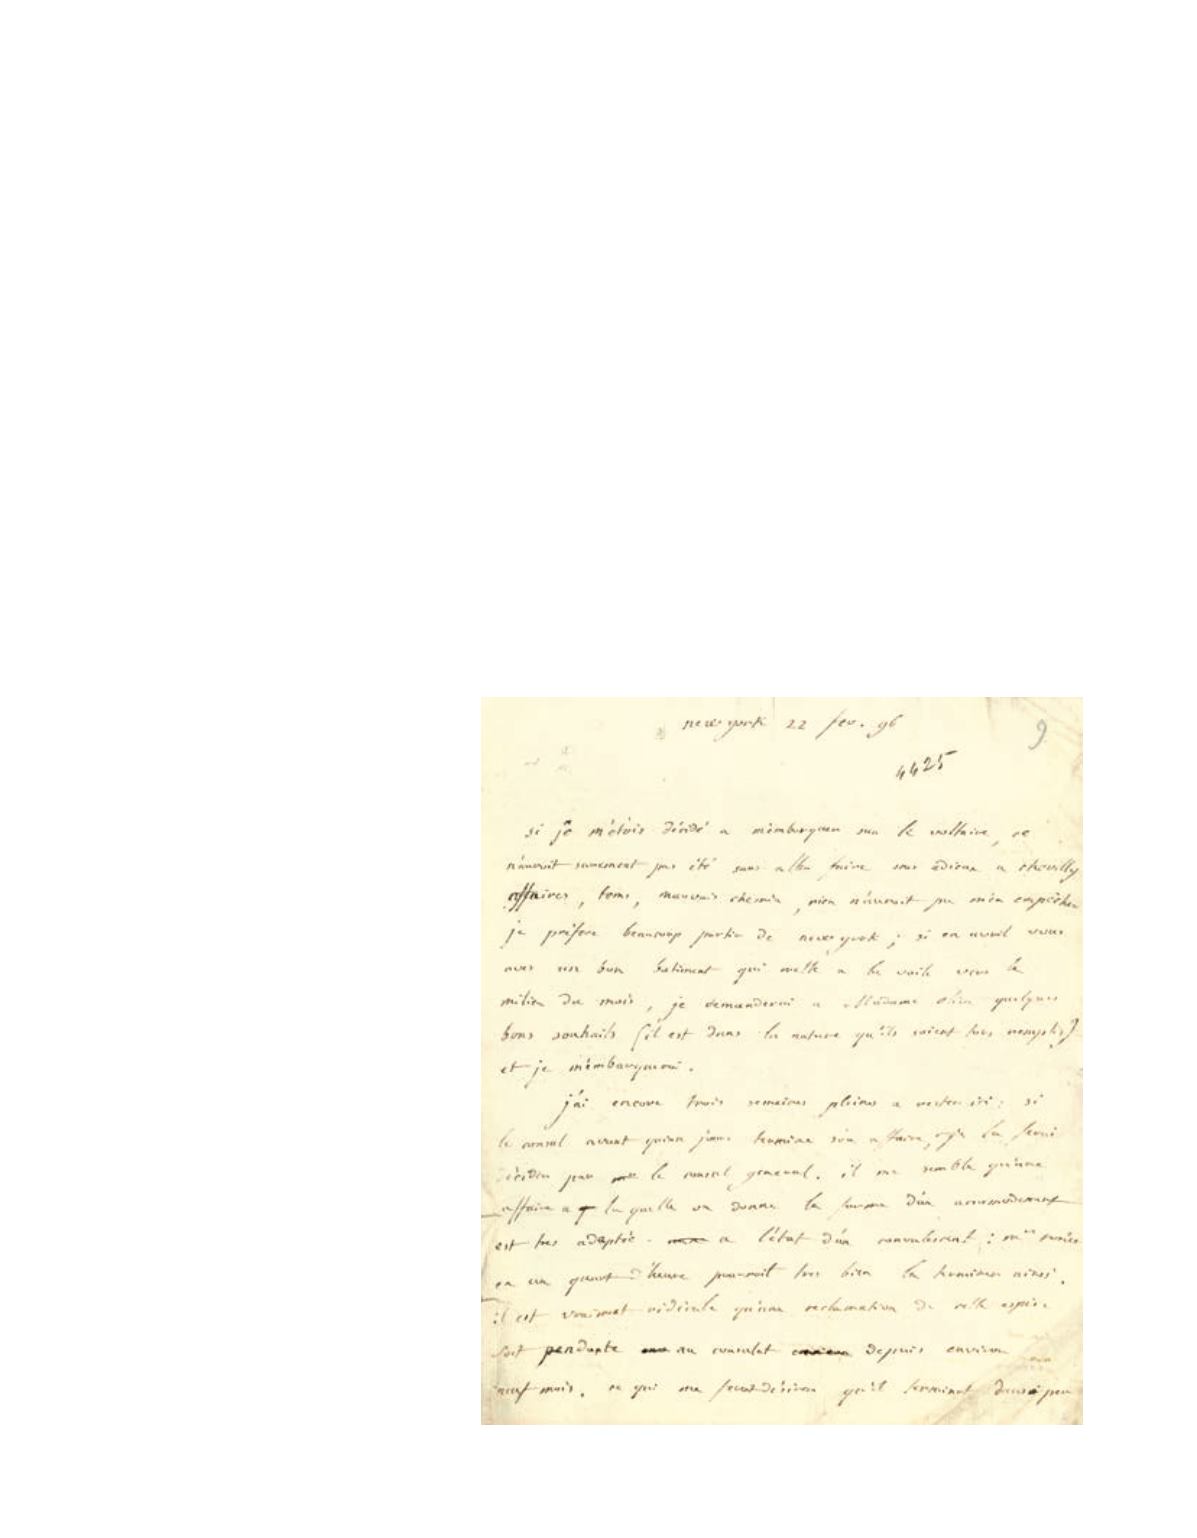 new york 22 fev. 96
9
4425
si je m'étois décidé a m'embarquer sur le voltaire, ce
n'auroit surement pas été sans aller faire mes adieux a chevilly
affaires, tems, mauvais chemin, rien n'auroit pu m'en empêcher
je préfere beaucoup partir de new york ; si en avril vous
avez un bon batiment qui mette a la voile vers le
milieu du mois, je demanderai a Madame olive quelques
bons souhaits (il est dans la nature qu'ils soient tous remplis)
et je m'embarquerai.
j'ai encore trois semaines pleines a rester ici : si
le consul avant quinze jours termine son affaire, je la ferai
décider par le consul general. il me semble qu'une
affaire a la quelle on donne la forme d'un accommodement
est tres adaptée a l'état d'un convalescent :
en un quart d'heure pourroit tres bien la terminer ainsi.
il est vraiment ridicule qu'une reclamation de cette espece
soit pendante au consulat depuis environ
neuf mois. ce qui me feroit désirer qu'il terminat dans peu